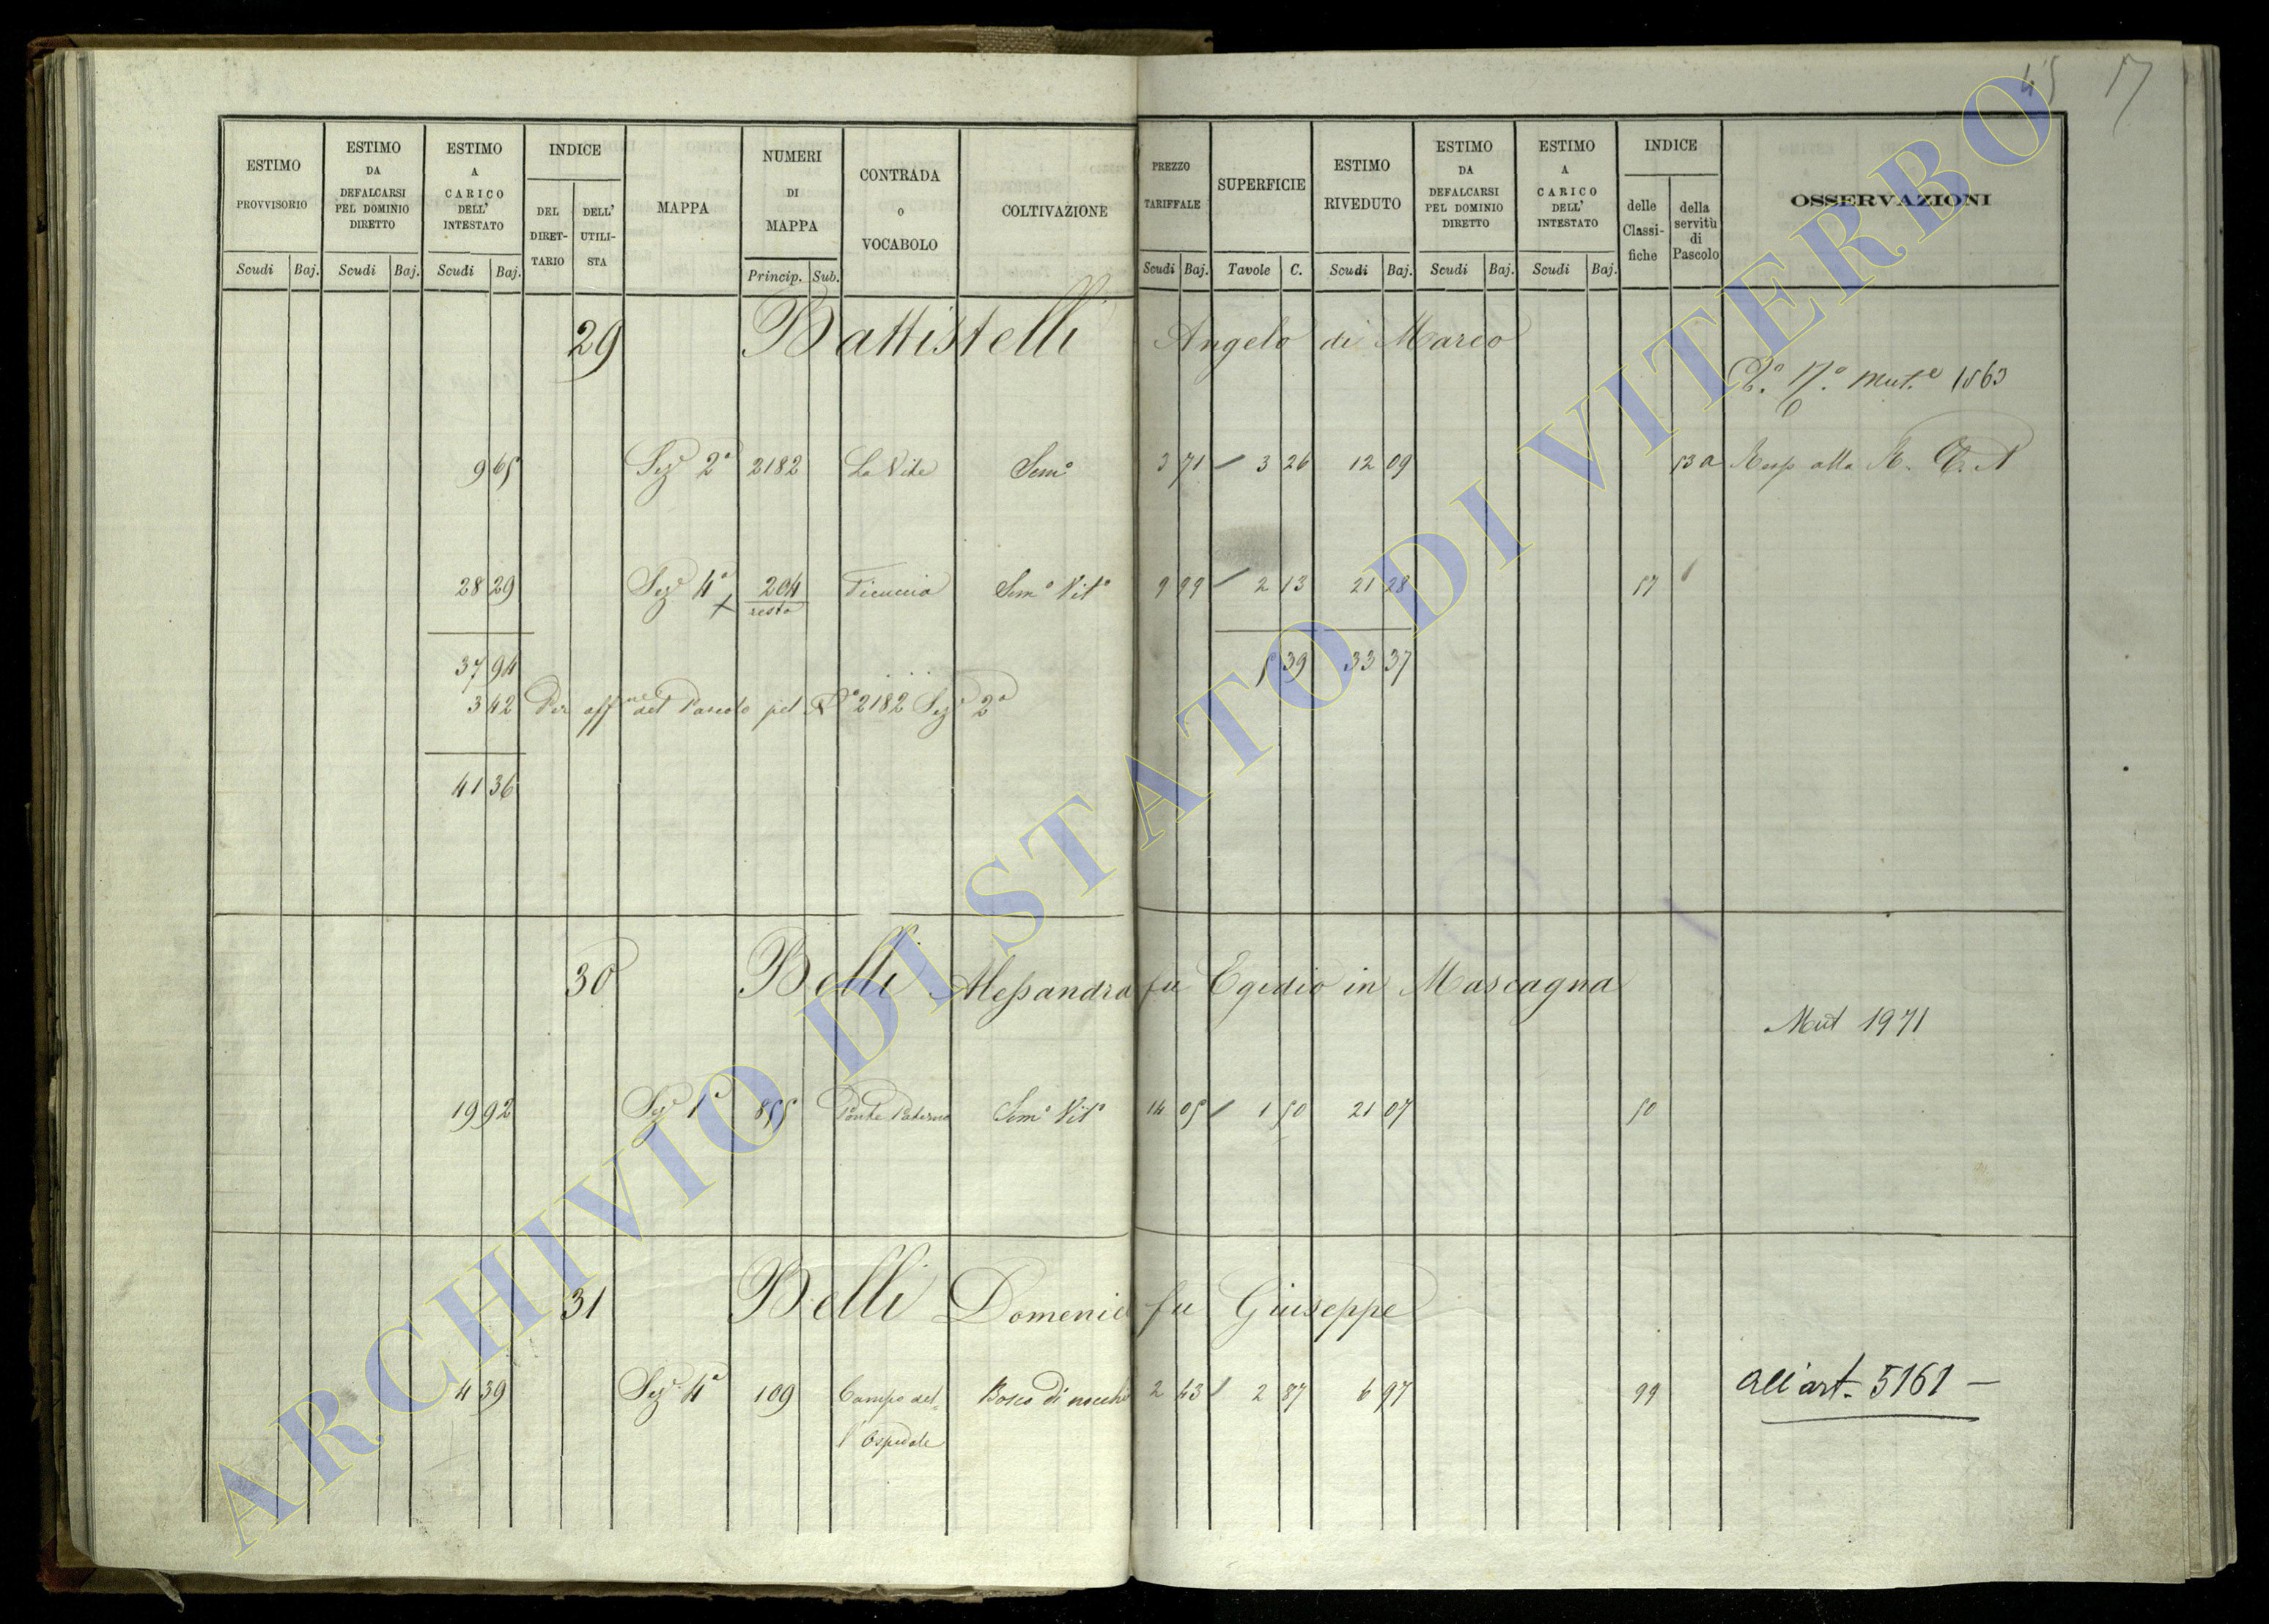 45 17
ESTIMO PROVVISORIO Scudi Baj.
ESTIMO DA DEFALCARSI PEL DOMINIO DIRETTO Scudi Baj.
ESTIMO A CARICO DELL' INTESTATO Scudi Baj.
INDICE DEL DIRETTARIO DELL' UTILISTA
MAPPA
NUMERI DI MAPPA Princip. Sub.
CONTRADA o VOCABOLO
COLTIVAZIONE
PREZZO TARIFFALE Scudi Baj.
SUPERFICIE Tavole C.
ESTIMO RIVEDUTO Scudi Baj.
ESTIMO DA DEFALCARSI PEL DOMINIO DIRETTO Scudi Baj.
ESTIMO A CARICO DELL' INTESTATO Scudi Baj.
INDICE delle Classifiche della servitù di Pascolo
OSSERVAZIONI
29 Battistelli Angelo di Marco
Mut.e 1863
9 65 Sez.e 2a 2182 La Vite Sem.o 3 71 3 26 12 09 53 a Resp alla R. C. A
28 29 Sez.e 4a 204 Ficuccia Sem.o Vit.o 9 99 2 13 21 28 57
resto
37 94 5 39 33 37
3 42 Per aff.ne del Pascolo pel N.o 2182 Sez.e 2a
41 36
30 Belli Alessandra fu Egidio in Mascagna
Mut 1971
19 92 Sez.e 1a 855 Ponte Paterno Sem.o Vit.o 14 05 1 50 21 07 50
31 Belli Domenico fu Giuseppe
4 39 Sez.e 4a 109 Campo del= Bosco di nocchie 2 43 2 87 6 97 99 all'art. 5161 —
l'Ospedale
ARCHIVIO DI STATO DI VITERBO